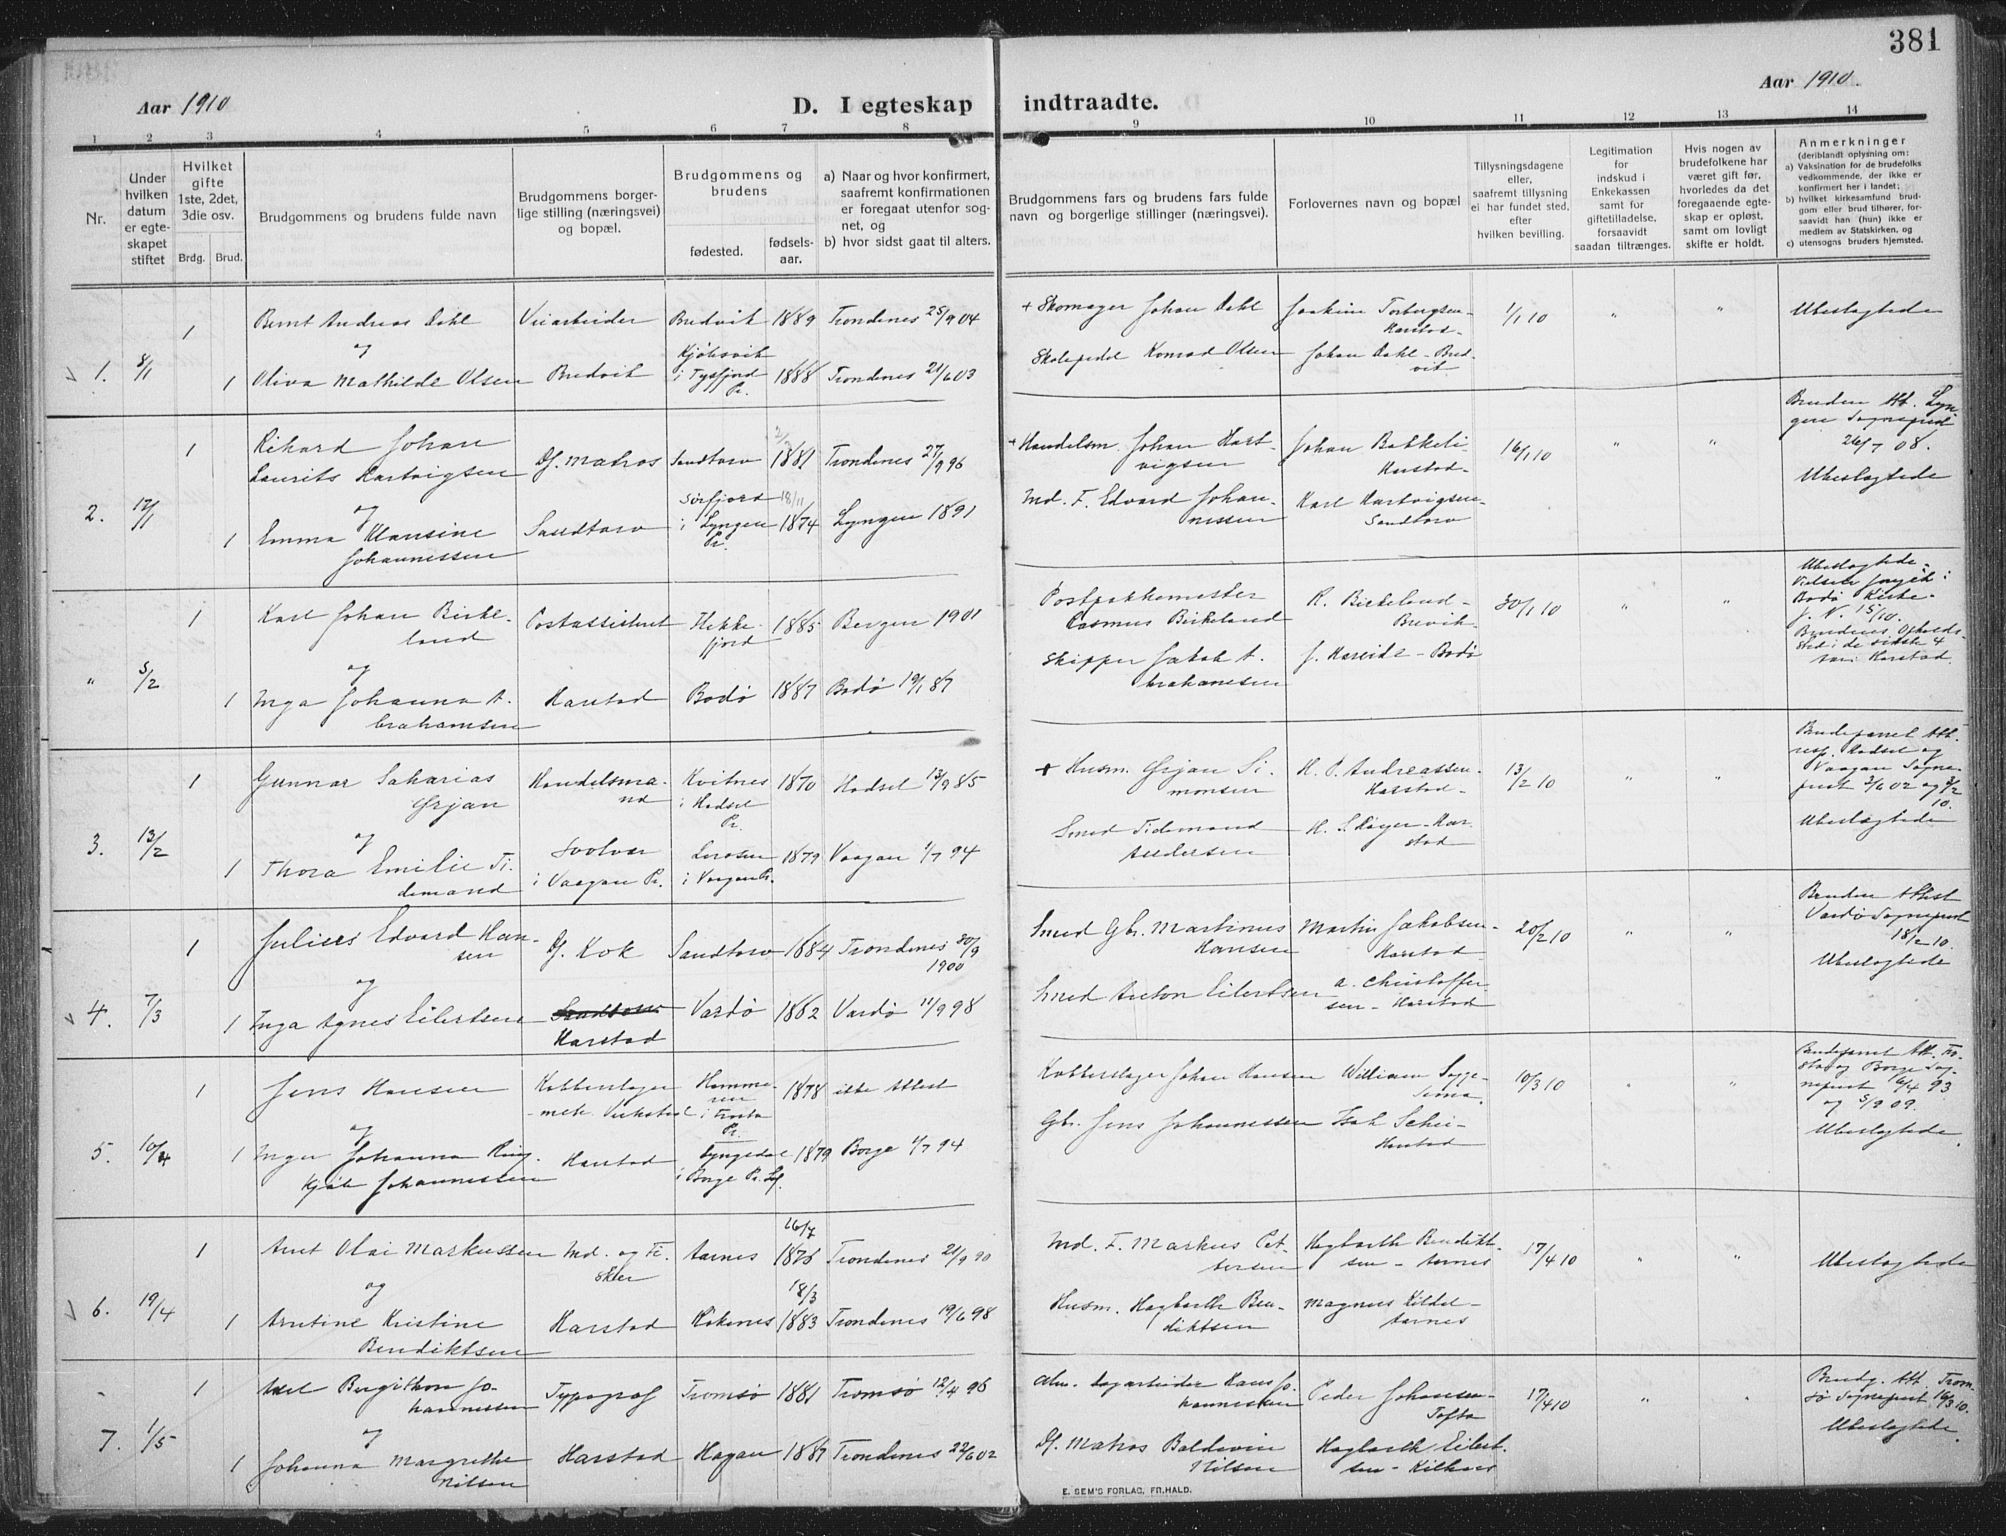 381
Aar 1910
D. I egteskap indtraadte.
Aar 1910.
1 2 3 4 5 6 7 8 9 10 11 12 13 14
Nr.
Under hvilken datum er egteskapet stiftet
Hvilket gifte 1ste, 2det, 3die osv.
Brdg. Brud.
Brudgommens og brudens fulde navn
Brudgommens borgerlige stilling (næringsvei) og bopæl.
Brudgommens og brudens
fødested.
fødselsaar.
a) Naar og hvor konfirmert, saafremt konfirmationen er foregaat utenfor sognet, og
b) hvor sidst gaat til alters.
Brudgommens fars og brudens fars fulde navn og borgerlige stillinger (næringsvei).
Forlovernes navn og bopæl
Tillysningsdagene eller, saafremt tillysning ei har fundet sted, efter hvilken bevilling.
Legitimation for indskud i Enkekassen samt for giftetilladelse, forsaavidt saadan tiltrænges.
Hvis nogen av brudefolkene har været gift før, hvorledes da det foregaaende egteskap er opløst, samt om lovligt skifte er holdt.
Anmerkninger
(deriblandt oplysning om:
a) Vaksination for de brudefolks vedkommende, der ikke er konfirmert her i landet;
b) hvilket kirkesamfund brudgom eller brud tilhører, forsaavidt han (hun) ikke er medlem av Statskirken, og
c) utensogns bruders hjemsted.
1. 8/1
1 Bernt Andreas Dahl Veiarbeider Bredvik 1889 Trondenes 25/9 04 + Skomager Johan Dahl Joakim Torbergsen - Harstad - 1/1 10 " " Ubeslagtede
og
1 Oliva Mathilde Olsen Bredvik Kjøbsvik i Tysfjord Pr. 1888 Trondenes 21/6 03 Konrad Olsen Johan Dahl - Bredvik
2. 17/1
1 Rikard Johan Laurits Hartvigsen Df. Matros Sandtorv 1881 Trondenes 27/9 96 + Handelsm. Johan Hartvigsen Johan Bakkeli - Harstad - 16/1 10 " " Bruden Att. Lyngen Sogneprest 26/7 08. Ubeslagtede
og
1 Emma Klausine Johannessen Sandtorv Sørfjord i Lyngen Pr. 18/11 1874 Lyngen 1891 Md. F. Edvard Johannessen Karl Hartvigsen - Sandtorv
" 5/2
1 Karl Johan Birkeland Postassistent Hekkefjord 1885 Bergen 1901 Postpakkemester Rasmus Birkeland R. Birkeland - Brevik - 30/1 10 " " Ubeslagtede - Vielsen foregik i Bodø Kirke - 15/10. Brudens Opholdssted i de sidste 4 Harstad
og
1 Inga Johanna Abrahamsen Harstad Bodø 1887 Bodø 19/1 87 Skipper Jakob Abrahamsen J. Hareide - Bodø
3. 13/2
1 Gunnar Sakarias Ørjan Handelsmand Kvitnes i Hadsel Pr. 1870 Hadsel 13/9 85 + Husm. Ørjan Simonsen H. P. Andreassen - Harstad - 13/2 10 " " Brudeparret Att. resp. Hadsel og Vaagan Sogneprest 3/6 02 og 3/2 10. Ubeslagtede
og
1 Thora Emilie Tidemand Svolvær i Vaagan Pr. i Vaagan Pr. 1879 Vaagan 1/7 94 Smed Tidemand Andersen H. S. Røyer - Harstad
4. 7/3
1 Julius Edvard Hansen Df. Kok Sandtorv 1884 Trondenes 30/9 1900 Smed Gbr. Martinus Hansen Martin Jakobsen - Harstad - 20/2 10 " " Bruden Attest Vardø Sogneprest 18/2 10. Ubeslagtede
og
1 Inga Agnes Eilertsen Harstad Vardø 1882 Vardø 11/9 98 Smed Anton Eilertsen A. Christoffersen - Harstad
5. 10/4
1 Jens Hansen Kobberslager mek. Verksted Hommeren i Frosta Pr. 1878 ikke Attest Kobberslager Johan Hansen William 10/3 10 " " Brudeparret Att. Frosta og Borge Sogneprest 16/4 93 og 5/9 09. Ubeslagtede
og
1 Inger Johanna Ringkjøb Johannessen Harstad i Borge Pr. Lf. 1879 Borge 1/7 94 Gbr. Jens Johannessen Isak Schei - Harstad
6. 19/4
1 Arnt Olai Markussen Md. og Fisker Aarnes 26/7 1876 Trondenes 21/9 90 Md. F. Markus Pettersen Hagbarth Bendiktsen - Aarnes 17/4 10 " " Ubeslagtede
og
1 Arntine Kristine Bendiktsen Harstad Røkenes 18/3 1883 Trondenes 19/6 98 Husm. Hagbarth Bendiktsen Magnus Kildal - Aarnes
7. 1/5
1 Axel Bergithon Johannessen Typograf Tromsø 1881 Tromsø 12/4 96 Alm. Dagarbeider Hans Johannessen Peder Johansen - Tofta 17/4 10 " " Brudg. Att. Tromsø Sogneprest 16/3 10. Ubeslagtede
og
1 Johanna Margrethe Nilsen Harstad Hagan 1881 Trondenes 22/6 02 Df. Matros Baldevin Nilsen Hagbarth Eilertsen - Kilhus
E. SEM'S FORLAG, FR.HALD.